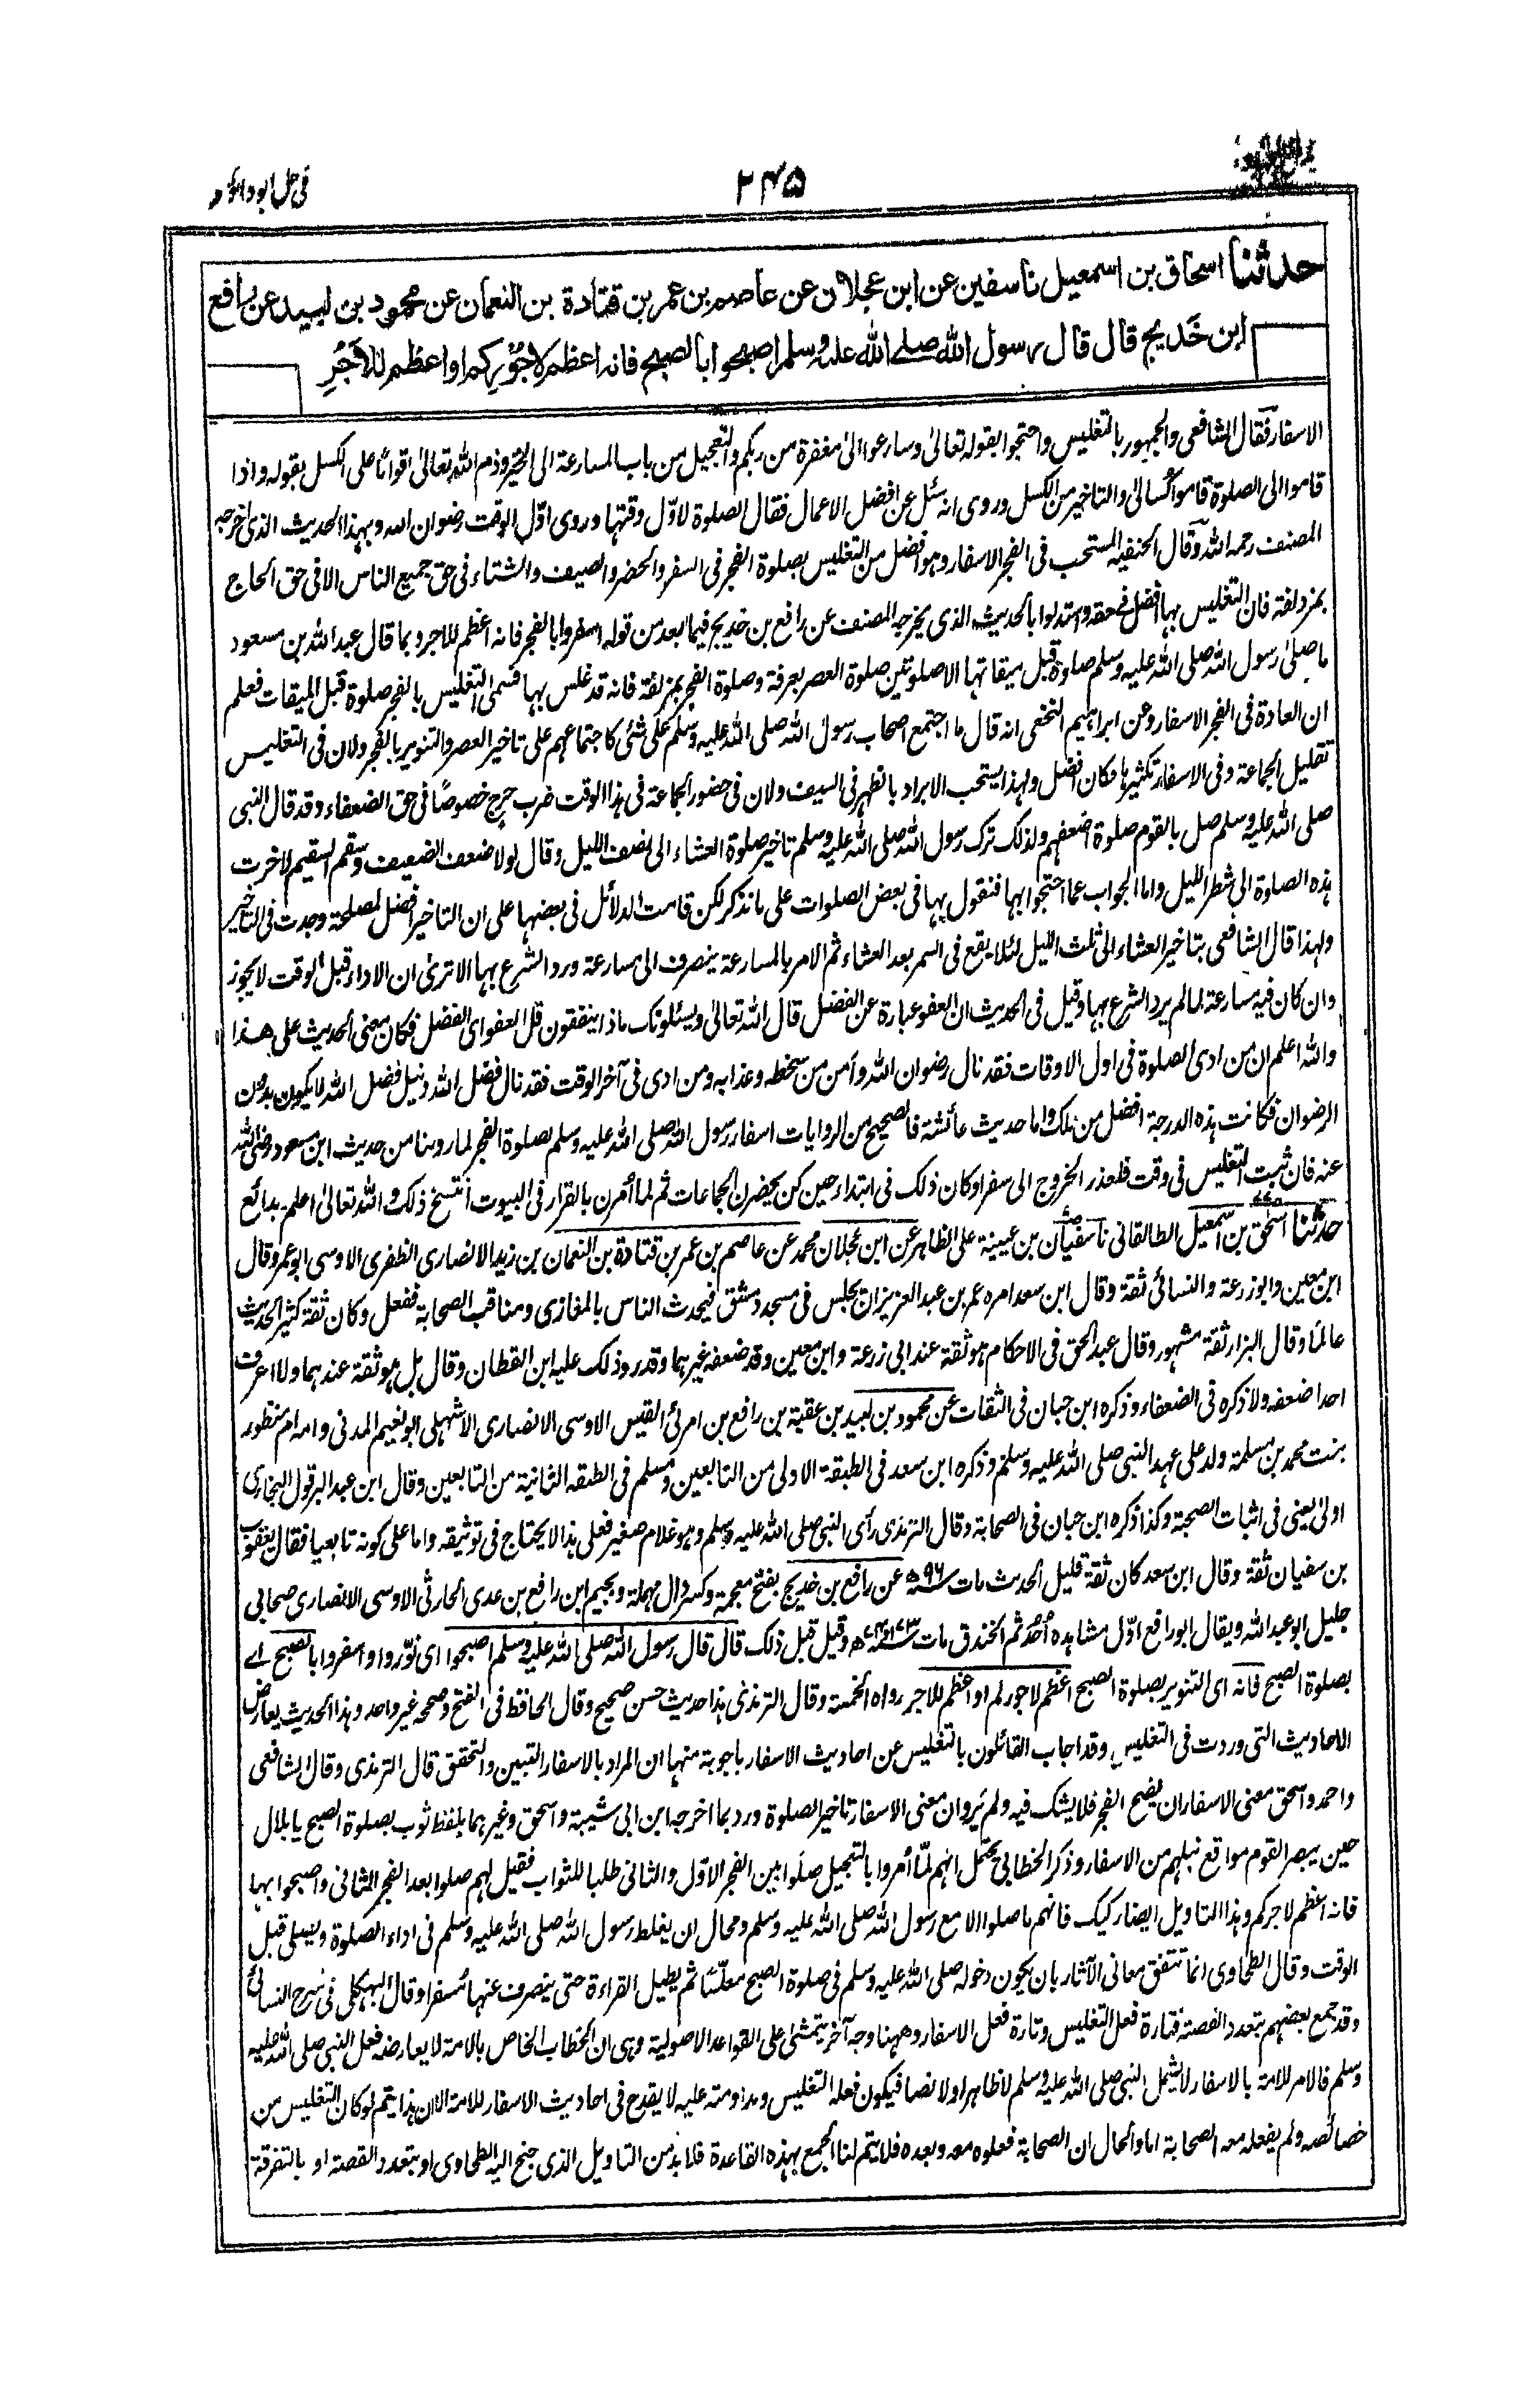 في حل ابو داؤد
٢٤٥
حدثنا اسحاق بن اسمعيل نا سفين عن ابن عجلان عن عاصم بن عمر بن قتادة بن النعمان عن محمود بن لبيد عن رافع
ابن خَديج قال قال رسول الله صلے الله عليه وسلم اصبحوا بالصبح فانه اعظم لاجُوْرِكم او اعظم للاَجْرِ
الاسفار فقال الشافعي والجمهور بالتغليس واحتجوا بقوله تعالىٰ وسارعوا الىٰ مغفرة من ربكم والتعجيل من باب المسارعة الى الخير وذم الله تعالىٰ اقوامًا على الكسل بقوله واذا
قاموا الى الصلوة قاموا كسالىٰ والتاخير من الكسل وروى انه سئل عن افضل الاعمال فقال الصلوة لاوّل وقتها وروى اوّل الوقت رضوان الله وبهذا الحديث الذى اخرجه
المصنف رحمه الله وقال الحنفية المستحب فى الفجر الاسفار وهو افضل من التغليس بصلوة الفجر فى السفر والحضر والصيف والشتاء فى حق جميع الناس الا فى حق الحاج
بمزدلفة فان التغليس بها افضل فے حقه واستدلوا بالحديث الذى يخرجه المصنف عن رافع بن خديج فيما بعد من قوله اسفروا بالفجر فانه اعظم للاجر وبما قال عبد الله بن مسعود
ما صلىٰ رسول الله صلى الله عليه وسلم صلوة قبل ميقاتها الا صلوتين صلوة العصر بعرفة وصلوة الفجر بمزدلفة فانه قد غلس بها فسمى التغليس بالفجر صلوة قبل الميقات فعلم
ان العادة فى الفجر الاسفار وعن ابراهيم النخعى انه قال ما اجتمع اصحاب رسول الله صلى الله عليه وسلم على شئ كاجتماعهم على تاخير العصر والتنوير بالفجر ولان فى التغليس
تقليل الجماعة وفى الاسفار تكثيرها فكان افضل ولهذا يستحب الابراد بالظهر فى الصيف ولان فى حضور الجماعة فى هذا الوقت ضرب حرج خصوصًا فى حق الضعفاء وقد قال النبى
صلى الله عليه وسلم صل بالقوم صلوة اضعفهم ولذلك ترك رسول الله صلى الله عليه وسلم تاخير صلوة العشاء الى نصف الليل وقال لولا ضعف الضعيف وسقم السقيم لاخرت
هذه الصلوة الى شطر الليل واما الجواب عما احتجوا بها فنقول بها فى بعض الصلوات على ما نذكر لكن قامت الدلائل فى بعضها على ان التاخير افضل لمصلحة وجدت فى التاخير
ولهذا قال الشافعى بتاخير العشاء الى ثلث الليل لئلا يقع فى السمر بعد العشاء ثم الامر بالمسارعة ينصرف الى مسارعة ورد الشرع بها الا ترىٰ ان الاداء قبل الوقت لا يجوز
وان كان فيه مسارعة لما لم يرد الشرع بها وقيل فى الحديث ان العفو عبارة عن الفضل قال الله تعالىٰ ويسئلونك ماذا ينفقون قل العفو اى الفضل فكان معنى الحديث على هذا
والله اعلم ان من ادى الصلوة فى اول الاوقات فقد نال رضوان الله وأمن من سخطه وعذابه ومن ادى فى آخر الوقت فقد نال فضل الله ونيل فضل الله لا يكون بدون
الرضوان فكانت هذه الدرجة افضل من تلك واما حديث عائشة فالصحيح من الروايات اسفار رسول الله صلى الله عليه وسلم بصلوة الفجر لما روينا من حديث ابن مسعود رضى الله
عنه فان ثبت التغليس فى وقت فلعذر الخروج الى سفر او كان ذلك فى ابتداء حين كن يحضرن الجماعات ثم لما أمرن بالقرار فى البيوت انتسخ ذلك والله تعالىٰ اعلم - بدائع
حدثنا اسحٰق بن اسمعيل الطالقانى نا سفيان بن عيينة على الظاهر عن ابن عجلان محمد عن عاصم بن عمر بن قتادة بن النعمان بن زيد الانصارى الظفرى الاوسى ابو عمرو قال
ابن معين وابو زرعة والنسائى ثقة وقال ابن سعد امره عمر بن عبد العزيز ان يجلس فى مسجد دمشق فيحدث الناس بالمغازى ومناقب الصحابة ففعل وكان ثقة كثير الحديث
عالمًا وقال البزار ثقة مشهور وقال عبد الحق فى الاحكام هو ثقة عند ابى زرعة وابن معين وقد ضعفه غيرهما وقد رد ذلك عليه ابن القطان وقال بل هو ثقة عندهما ولا اعرف
احدا ضعفه ولا ذكره فى الضعفاء وذكره ابن حبان فى الثقات عن محمود بن لبيد بن عقبة بن رافع بن امرئ القيس الاوسى الانصارى الاشهلى ابو نعيم المدنى وامه ام منظور
بنت محمد بن مسلمة ولد على عهد النبى صلى الله عليه وسلم وذكره ابن سعد فى الطبقة الاولى من التابعين ومسلم فى الطبقه الثانية من التابعين وقال ابن عبد البر قول البخارى
اولىٰ يعنى فى اثبات الصحبة وكذا ذكره ابن حبان فى الصحابة وقال الترمذى رأى النبى صلى الله عليه وسلم وهو غلام صغير فعلى هذا لا يحتاج فى توثيقه واما على كونه تابعيا فقال يعقوب
بن سفيان ثقة وقال ابن سعد كان ثقة قليل الحديث مات سنة ٩٦ه عن رافع بن خديج بفتح معجمة وكسر دال مهملة وبجيم ابن رافع بن عدى الحارثى الاوسى الانصارى صحابى
جليل ابو عبد الله ويقال ابو رافع اوّل مشاهده أُحُد ثم الخندق مات وقيل قبل ذلك قال قال رسول الله صلى الله عليه وسلم اصبحوا اى نوّروا واسفروا بالصبح اے
بصلوة الصبح فانه اى التنوير بصلوة الصبح اعظم لاجوركم او اعظم للاجر رواه الخمسة وقال الترمذى هذا حديث حسن صحيح وقال الحافظ فى الفتح وصححه غير واحد وهذا الحديث يعارض
الاحاديث التى وردت فى التغليس وقد اجاب القائلون بالتغليس عن احاديث الاسفار باجوبة منها ان المراد بالاسفار التبين والتحقق قال الترمذى وقال الشافعى
واحمد واسحق معنى الاسفار ان يضح الفجر فلا يشك فيه ولم يَروا ان معنى الاسفار تاخير الصلوة ورد بما اخرجه ابن ابى شيبة واسحق وغيرهما بلفظ ثوب بصلوة الصبح يا بلال
حين يبصر القوم مواقع نبلهم من الاسفار وذكر الخطابى يحتمل انهم لمّا أمروا بالتعجيل صلَوا بين الفجر الاوّل والثانى طلبا للثواب فقيل لهم صلوا بعد الفجر الثانى واصبحوا بها
فانه اعظم لاجركم وهذا التاويل ايضا ركيك فانهم ما صلوا الا مع رسول الله صلى الله عليه وسلم ومحال ان يغلط رسول الله صلى الله عليه وسلم فى اداء الصلوة ويصلى قبل
الوقت وقال الطحاوى انما تتفق معانى الآثار بان يكون دخوله صلى الله عليه وسلم فى صلوة الصبح مغلّسًا ثم يطيل القراءة حتى ينصرف عنها مُسفرا وقال البهكلى فى شرح النسائى
وقد جمع بعضهم بتعدد القصة فتارة فعل التغليس وتارة فعل الاسفار وههنا وجه آخر يتمشىٰ على القواعد الاصولية وهى ان الخطاب الخاص بالامة لا يعارضه فعل النبى صلى الله عليه
وسلم فالامر للامة بالاسفار لا يشمل النبى صلى الله عليه وسلم لا ظاهرا ولا نصا فيكون فعله التغليس ومداومته عليه لا يقدح فى احاديث الاسفار للامة الا ان هذا يتم لو كان التغليس من
خصائصه ولم يفعله معه الصحابة اما والحال ان الصحابة فعلوه معه وبعده فلا يتم لنا الجمع بهذه القاعدة فلا بد من التاويل الذى جنح اليه الطحاوى او بتعدد القصة او بالتفرقة